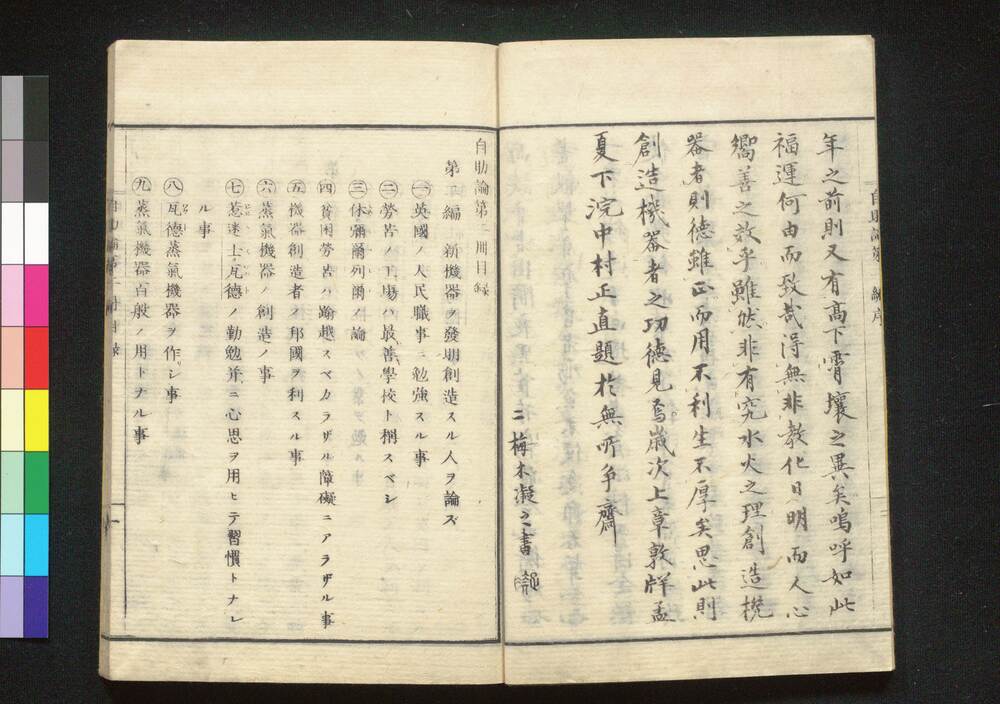 年之前則又有高下霄壤之異矣嗚呼如此
福運何由而致哉得無非教化日明而人心
嚮善之效乎雖然非有究水火之理創造機
器者則德雖正而用不利生不厚矣思此則
創造機器者之功德見焉歲次上章敦牂孟
夏下浣中村正直題於無所爭齋
二梅木凝之書
自助論第二冊目録
第二編 新機器ヲ發明創造スル人ヲ論ズ
㊀英國ノ人民職事ニ勉強スル事
㊁勞苦ノ工場ハ最善學校ト稱スベシ
㊂休彌爾列爾ノ論
㊃貧困勞苦ハ踰越スベカラザル障礙ニアラザル事
㊄機器創造者ノ邦國ヲ利スル事
㊅蒸氣機器ノ創造ノ事
㊆惹迷士瓦德ノ勤勉并ニ心思ヲ用ヒテ習慣トナレ
ル事
㊇瓦德蒸氣機器ヲ作シ事
㊈蒸氣機器百般ノ用トナル事